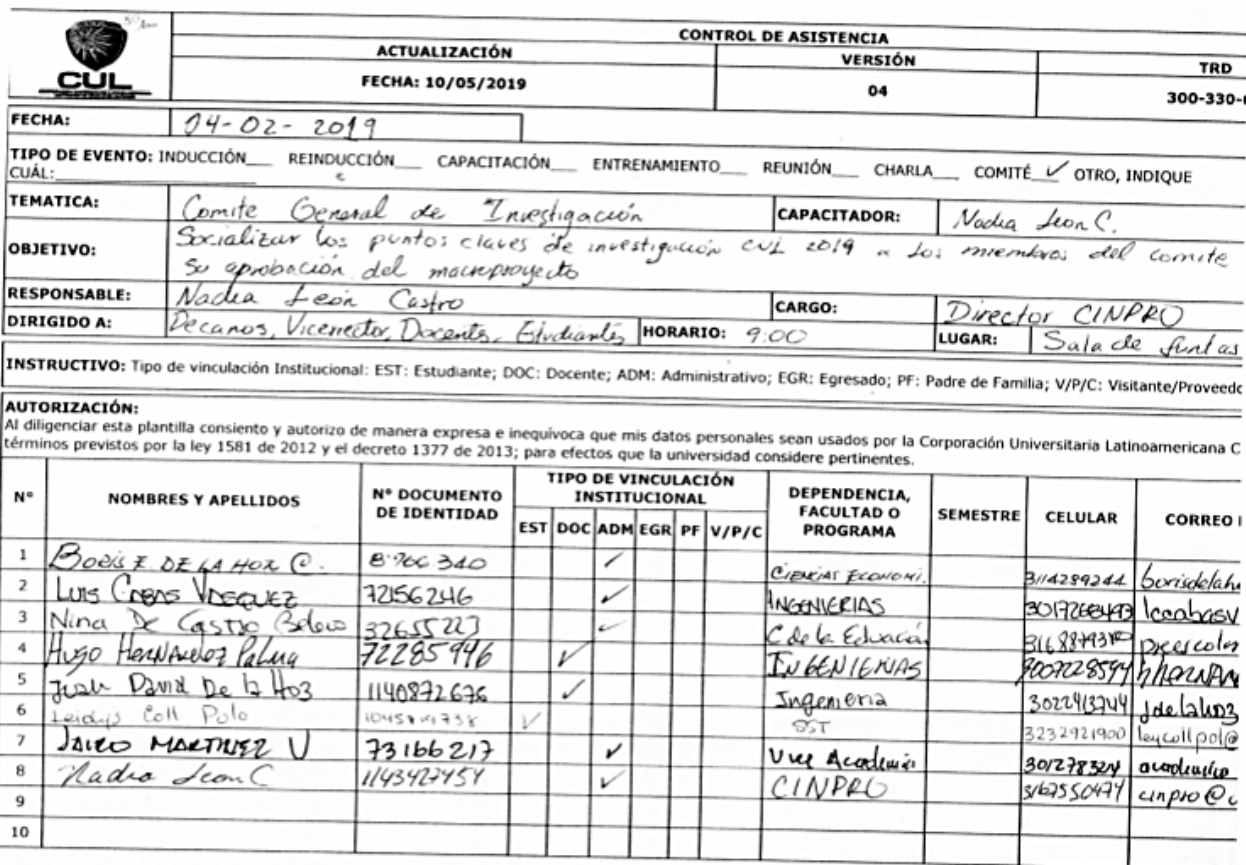 CUL
CONTROL DE ASISTENCIA
ACTUALIZACIÓN VERSIÓN TRD
FECHA: 10/05/2019 04 300-330-
FECHA: 04-02-2019
TIPO DE EVENTO: INDUCCIÓN___ REINDUCCIÓN___ CAPACITACIÓN___ ENTRENAMIENTO___ REUNIÓN___ CHARLA___ COMITÉ_✓_ OTRO, INDIQUE
CUÁL:___
TEMATICA: Comite General de Investigación CAPACITADOR: Nadia Leon C.
OBJETIVO: Socializar los puntos claves de investigación CUL 2019 a los miembros del comite
su aprobación del macroproyecto
RESPONSABLE: Nadia León Castro CARGO: Director CINPRO
DIRIGIDO A: Decanos, Vicerrector, Docente, Estudiantes HORARIO: 9:00 LUGAR: Sala de Juntas
INSTRUCTIVO: Tipo de vinculación Institucional: EST: Estudiante; DOC: Docente; ADM: Administrativo; EGR: Egresado; PF: Padre de Familia; V/P/C: Visitante/Proveedo
AUTORIZACIÓN:
Al diligenciar esta plantilla consiento y autorizo de manera expresa e inequívoca que mis datos personales sean usados por la Corporación Universitaria Latinoamericana C
términos previstos por la ley 1581 de 2012 y el decreto 1377 de 2013; para efectos que la universidad considere pertinentes.
N° NOMBRES Y APELLIDOS N° DOCUMENTO DE IDENTIDAD TIPO DE VINCULACIÓN INSTITUCIONAL DEPENDENCIA, FACULTAD O PROGRAMA SEMESTRE CELULAR CORREO I
EST DOC ADM EGR PF V/P/C
1 BORIS E DE LA HOZ C. ✓ CIENCIAS ECONOMI. 3114289244 borisdelah
2 LUIS CABAS VASQUEZ 72156246 ✓ INGENIERIAS lccabasv
3 Nina De Castro 32655223 ✓ C de la Educación
4 Hugo HERNANDEZ Palma 72285946 ✓ INGENIERIAS
5 Juan David De la Hoz 1140872676 ✓ Ingenieria 3022413744 jdelahoz
6 Leidys Coll Polo ✓ SST 3232921900 leycollpol@
7 JAIRO MARTINEZ V 73166217 ✓ Vice Academi
8 Nadia Leon C 1143427454 ✓ CINPRO 3167550474 cinpro@c
9
10